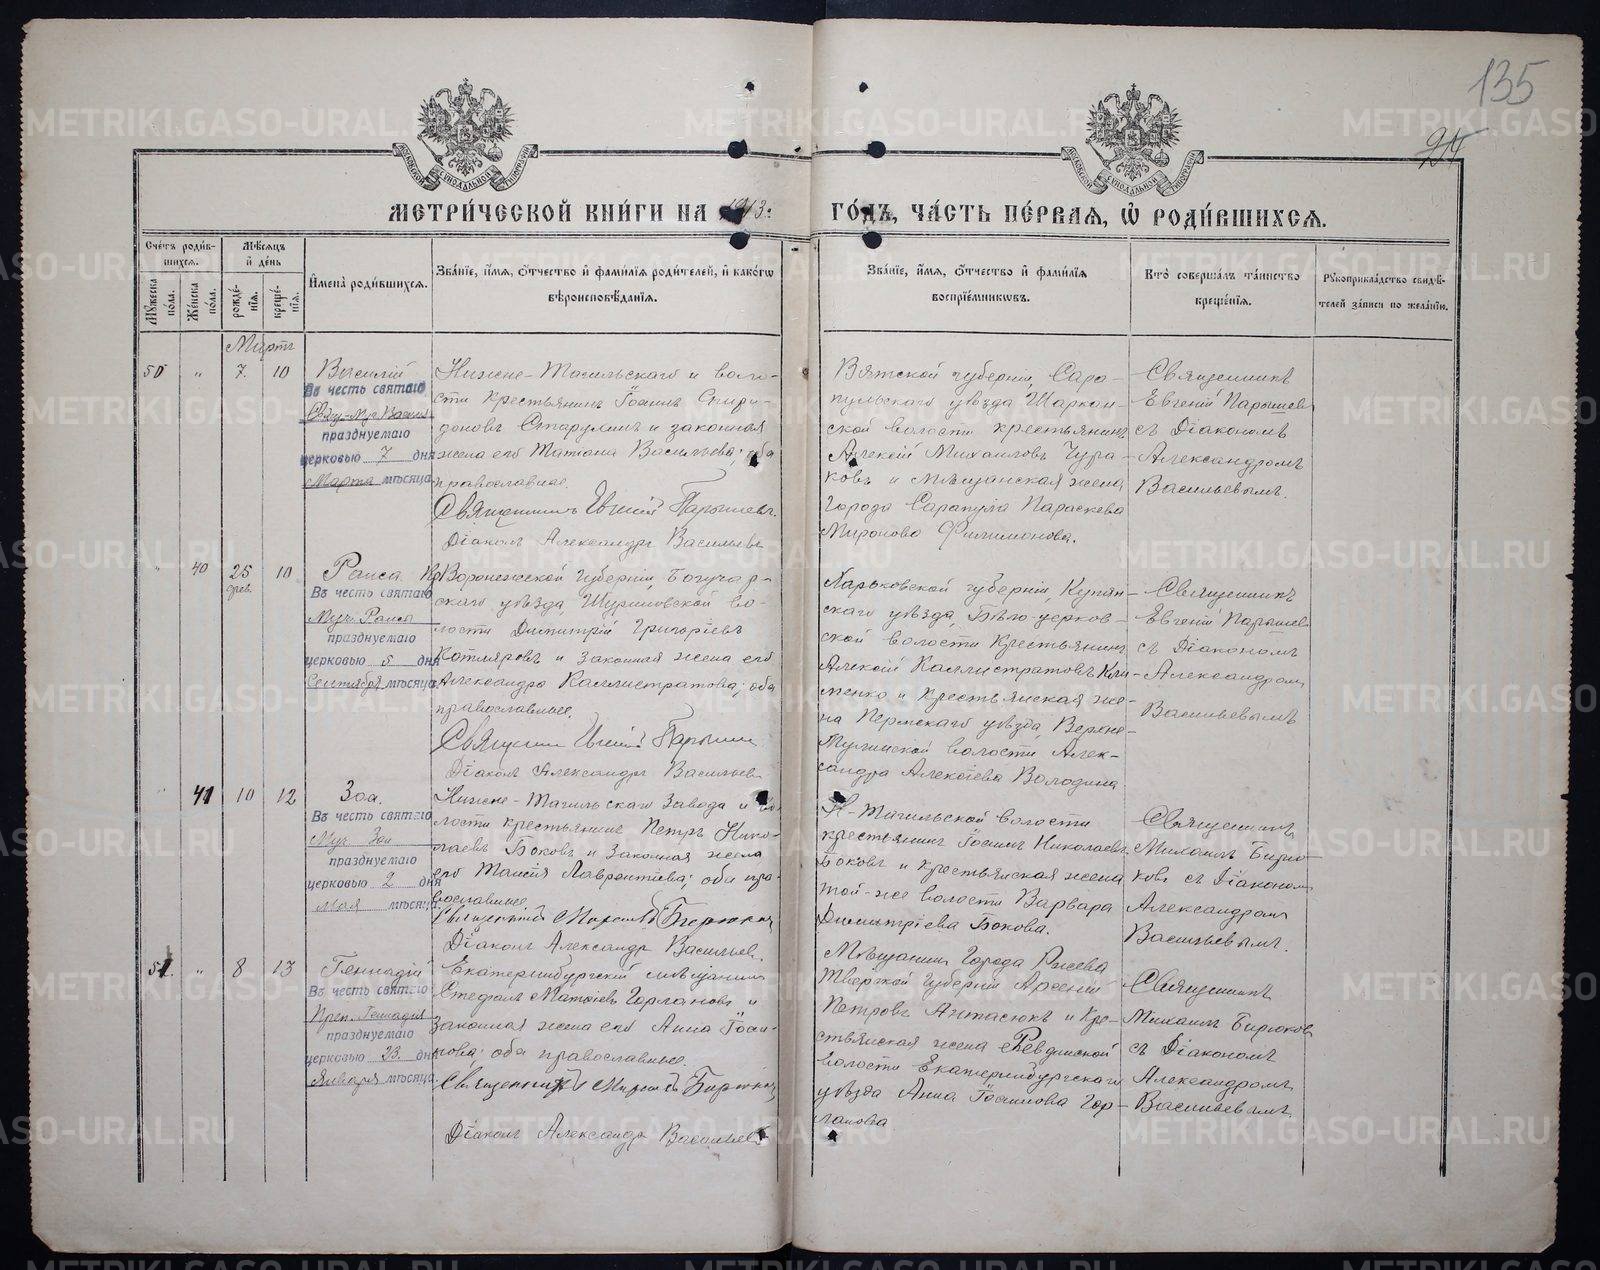 135
МЕТРИ́ЧЕСКОЙ КНИ́ГИ НА 1913
ГО́ДЪ, ЧА́СТЬ ПЕ́РВАѦ, Ѿ РОДИ́ВШИХСѦ.
Сче́тъ роди́в-
шихсѧ.
Мꙋ́жеска по́ла.
Же́нска по́ла.
Мѣ́сѧцъ и де́нь
рожде́-
нїѧ.
креще́-
нїѧ.
И҆мена̀ роди́вшихсѧ.
Зва́нїе, и҆́мѧ, ѻ҆́тчество и҆ фами́лїѧ роди́телей, и҆ како́гѡ
вѣроисповѣ́данїѧ.
Зва́нїе, и҆́мѧ, ѻ҆́тчество и҆ фами́лїѧ
воспрїе́мникѡвъ.
Кто̀ соверша́лъ та́инство
креще́нїѧ.
Рꙋкоприкла́дство свидѣ́-
телей за́писи по жела́нїю.
Мартъ
50 " 7. 10
Василій
Въ честь святаго
Свящ-Муч Василія
празднуемаго
церковью 7 дня
Марта мѣсяца
Нижне-Тагильскаго и воло-
сти крестьянинъ Іоаннъ Спири-
доновъ Старухинъ и законная
жена его Татіана Васильева; оба
православные.
Священникъ Евгеній Парышевъ.
Діаконъ Александръ Васильевъ
Вятской губерніи, Сара-
пульскаго уѣзда Шаркан-
ской волости крестьянинъ
Алексій Михаиловъ Чура-
ковъ и мѣщанская жена
города Сарапула Параскева
Миронова Филимонова.
Священникъ
Евгеній Парышевъ
съ Діакономъ
Александромъ
Васильевымъ.
" 40 25 10
фев.
Раиса
Въ честь святаго
Муч. Раисы
празднуемаго
церковью 5 дня
Сентября мѣсяца
Воронежской губерніи, Богучар-
скаго уѣзда, Шуриновской во-
лости Димитрій Григоріевъ
Котляровъ и законная жена его
Александра Каллистратова; оба
православные.
Священникъ Евгеній Парышевъ
Діаконъ Александръ Васильевъ
Харьковской губерніи, Купян-
скаго уѣзда, Бѣло-церков-
ской волости крестьянинъ
Алексій Каллистратовъ Кли-
менко и крестьянская же-
на Пермскаго уѣзда, Верхне-
Муллинской волости Алек-
сандра Алексіева Володина
Священникъ
Евгеній Парышевъ
съ Діакономъ
Александромъ
Васильевымъ
" 41 10 12
Зоа.
Въ честь святаго
Муч Зои
празднуемаго
церковью 2 дня
мая мѣсяца
Нижне-Тагильскаго завода и во-
лости крестьянинъ Петръ Нико-
лаевъ Боковъ и законная жена
его Таисія Лаврентіева; оба пра-
вославные
Священникъ Михаилъ Бирюковъ
Діаконъ Александръ Васильевъ.
Н-Тагильской волости
крестьянинъ Іоаннъ Николаевъ
Боковъ и крестьянская жена
той-же волости Варвара
Димитріева Бокова.
Священникъ
Михаилъ Бирю-
ковъ съ Діакономъ
Александромъ
Васильевымъ.
51. " 8 13
Геннадій
Въ честь святаго
Преп. Геннадія
празднуемаго
церковью 23. дня
Января мѣсяца
Екатеринбургскій мѣщанинъ
Стефанъ Матѳіевъ Горлановъ и
законная жена его Анна Іоан-
нова; оба православные.
Священникъ Михаилъ Бирюковъ
Діаконъ Александръ Васильевъ
Мѣщанинъ города Ржева
Тверской губерніи Арсеній
Петровъ Антасюкъ и кре-
стьянская жена Ревдинской
волости Екатеринбургскаго
уѣзда Анна Іоаннова Гор-
ланова
Священникъ
Михаилъ Бирюковъ
съ Діакономъ
Александромъ
Васильевымъ.